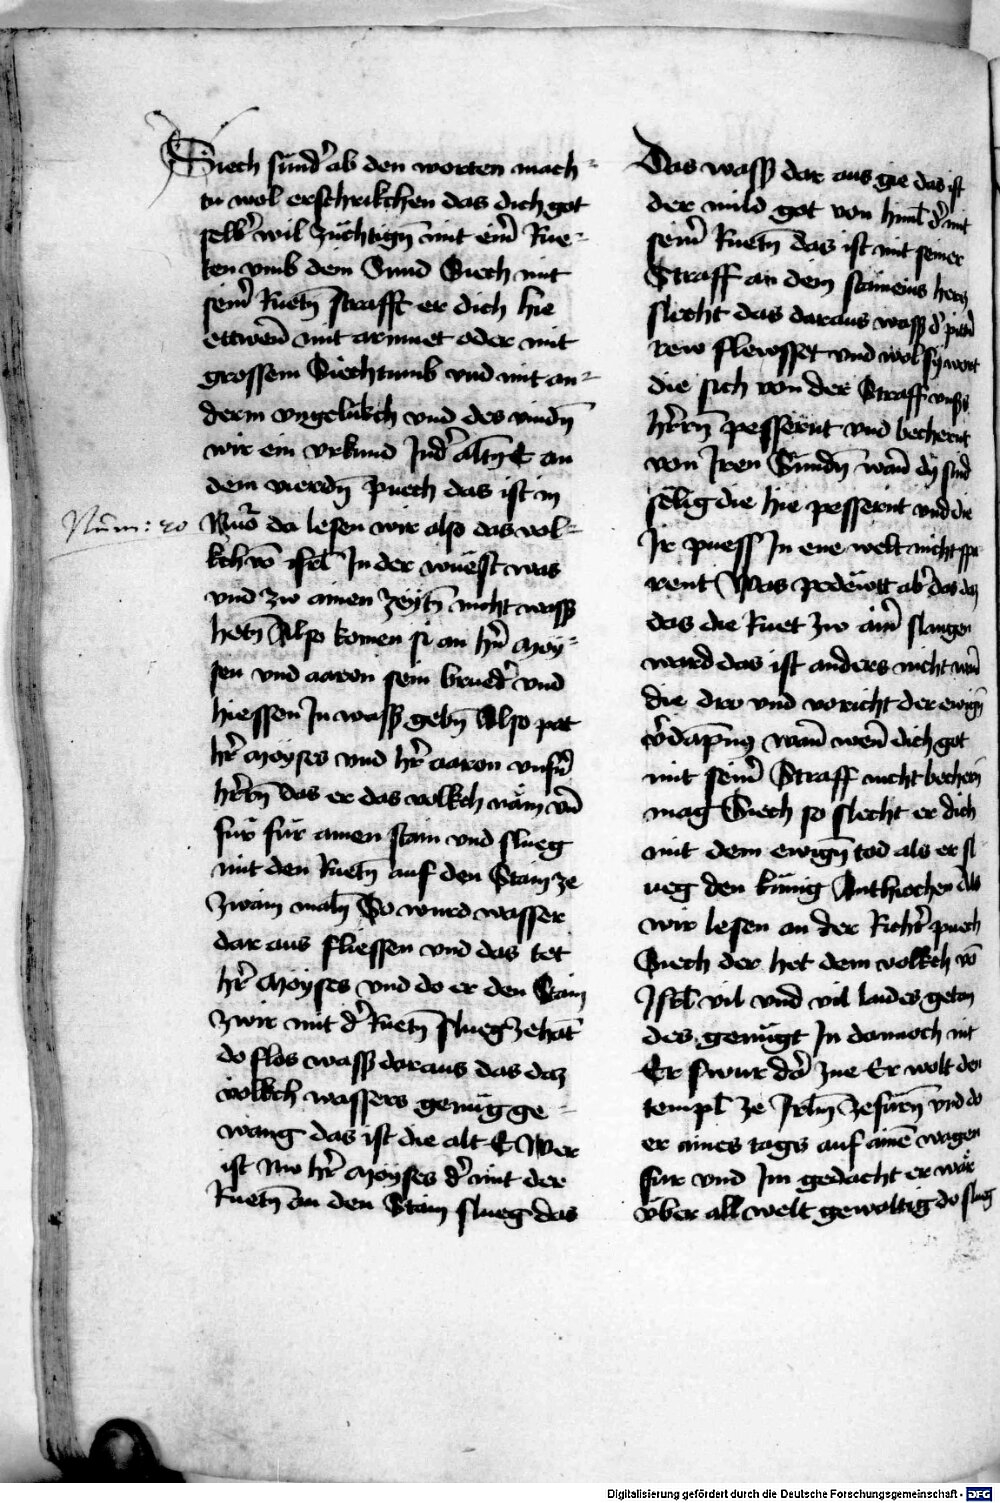 Siech sünd͛ ab den worten mach⸗
tu wol erschrikchen das dich got
selb͛ wil züchtigñ mit eim̃ Rue⸗
ten vmb dein Sünd Siech mit
seim̃ Rietñ strafft er dich hie
ettwen̄ mit armuet oder mit
grossem Siechtumb vnd mit an⸗
derm vngelükch vnd des vindñ
wir ein vrkund Jnd͛ altñ E an
dem vierdñ puech das ist in
Nũo da lesen wir also das vol⸗
kch vō isrl̄ Jn der wüest was
vnd zw ainen zeytñ nicht wass͛
hetñ Also komen si an hr̄n Moy⸗
sen vnd aaron sein brued͛ vnd
hiessen Jn wass͛ gebñ Also pat
hr̄ Moyses vnd hr̄ aaron vnsñ
hr̄rñ das er das volkch näm vn̄
für für ainen stain vnd slueg
mit den Ruetñ auf den Stain ze
zwain malñ So wurd wasser
dar aus fliessen vnd das tet
hr̄ Moyses vnd do er den Stain
zwir mit d͛ Ruetñ slueg zehāt
do flos wass͛ daraus das daz
volkch wassers genüg ge⸗
wang das ist die alt E Wer
ist Nw hr̄ Moyses d͛ mit der
Ruetñ an den Stain slueg das
Num: 20
Das wass͛ dar aus gie das ist
der mild got von himl̄ d͛ mit
seim̃ Ruetñ das ist mit seiner
Straff an dem staineins hercz
slecht das daraus wass͛ d͛
rew flewsset vnd wol sy wert
die sich von der Straff vnsers
hr̄rñ pessernt vnd bechernt
von Jren Sündñ wan̄ dy sind
sälig die hie pessernt vnd die
Jr puess Jn ene welt nicht spa
rent Was pedewtt ab͛ das daz
das die Ruet zw aim̃ slangen
ward das ist anders nicht wan̄
die dro vnd voricht der ewign̄
v͛dāpnus wan̄ wen̄ dich got
mit seim̃ Straff nicht bechern̄
mag Siech so slecht er dich
mit dem ewign̄ tod als er sl
ueg den künig Anthiochen Als
wir lesen an der Richt͛ puech
Siech der het dem volkch vō
Jsrl̄ vil vnd vil laides getan
des genügt Jn dannoch nit
Er swur dar zue Er wolt den
templ̄ ze Jrlm̄ zefürñ vnd do
er aines tags auf ainē wagen
für vnd Jm gedacht er wär
vber all welt gewaltig do slueg
Digitalisierung gefördert durch die Deutsche Forschungsgemeinschaft - DFG